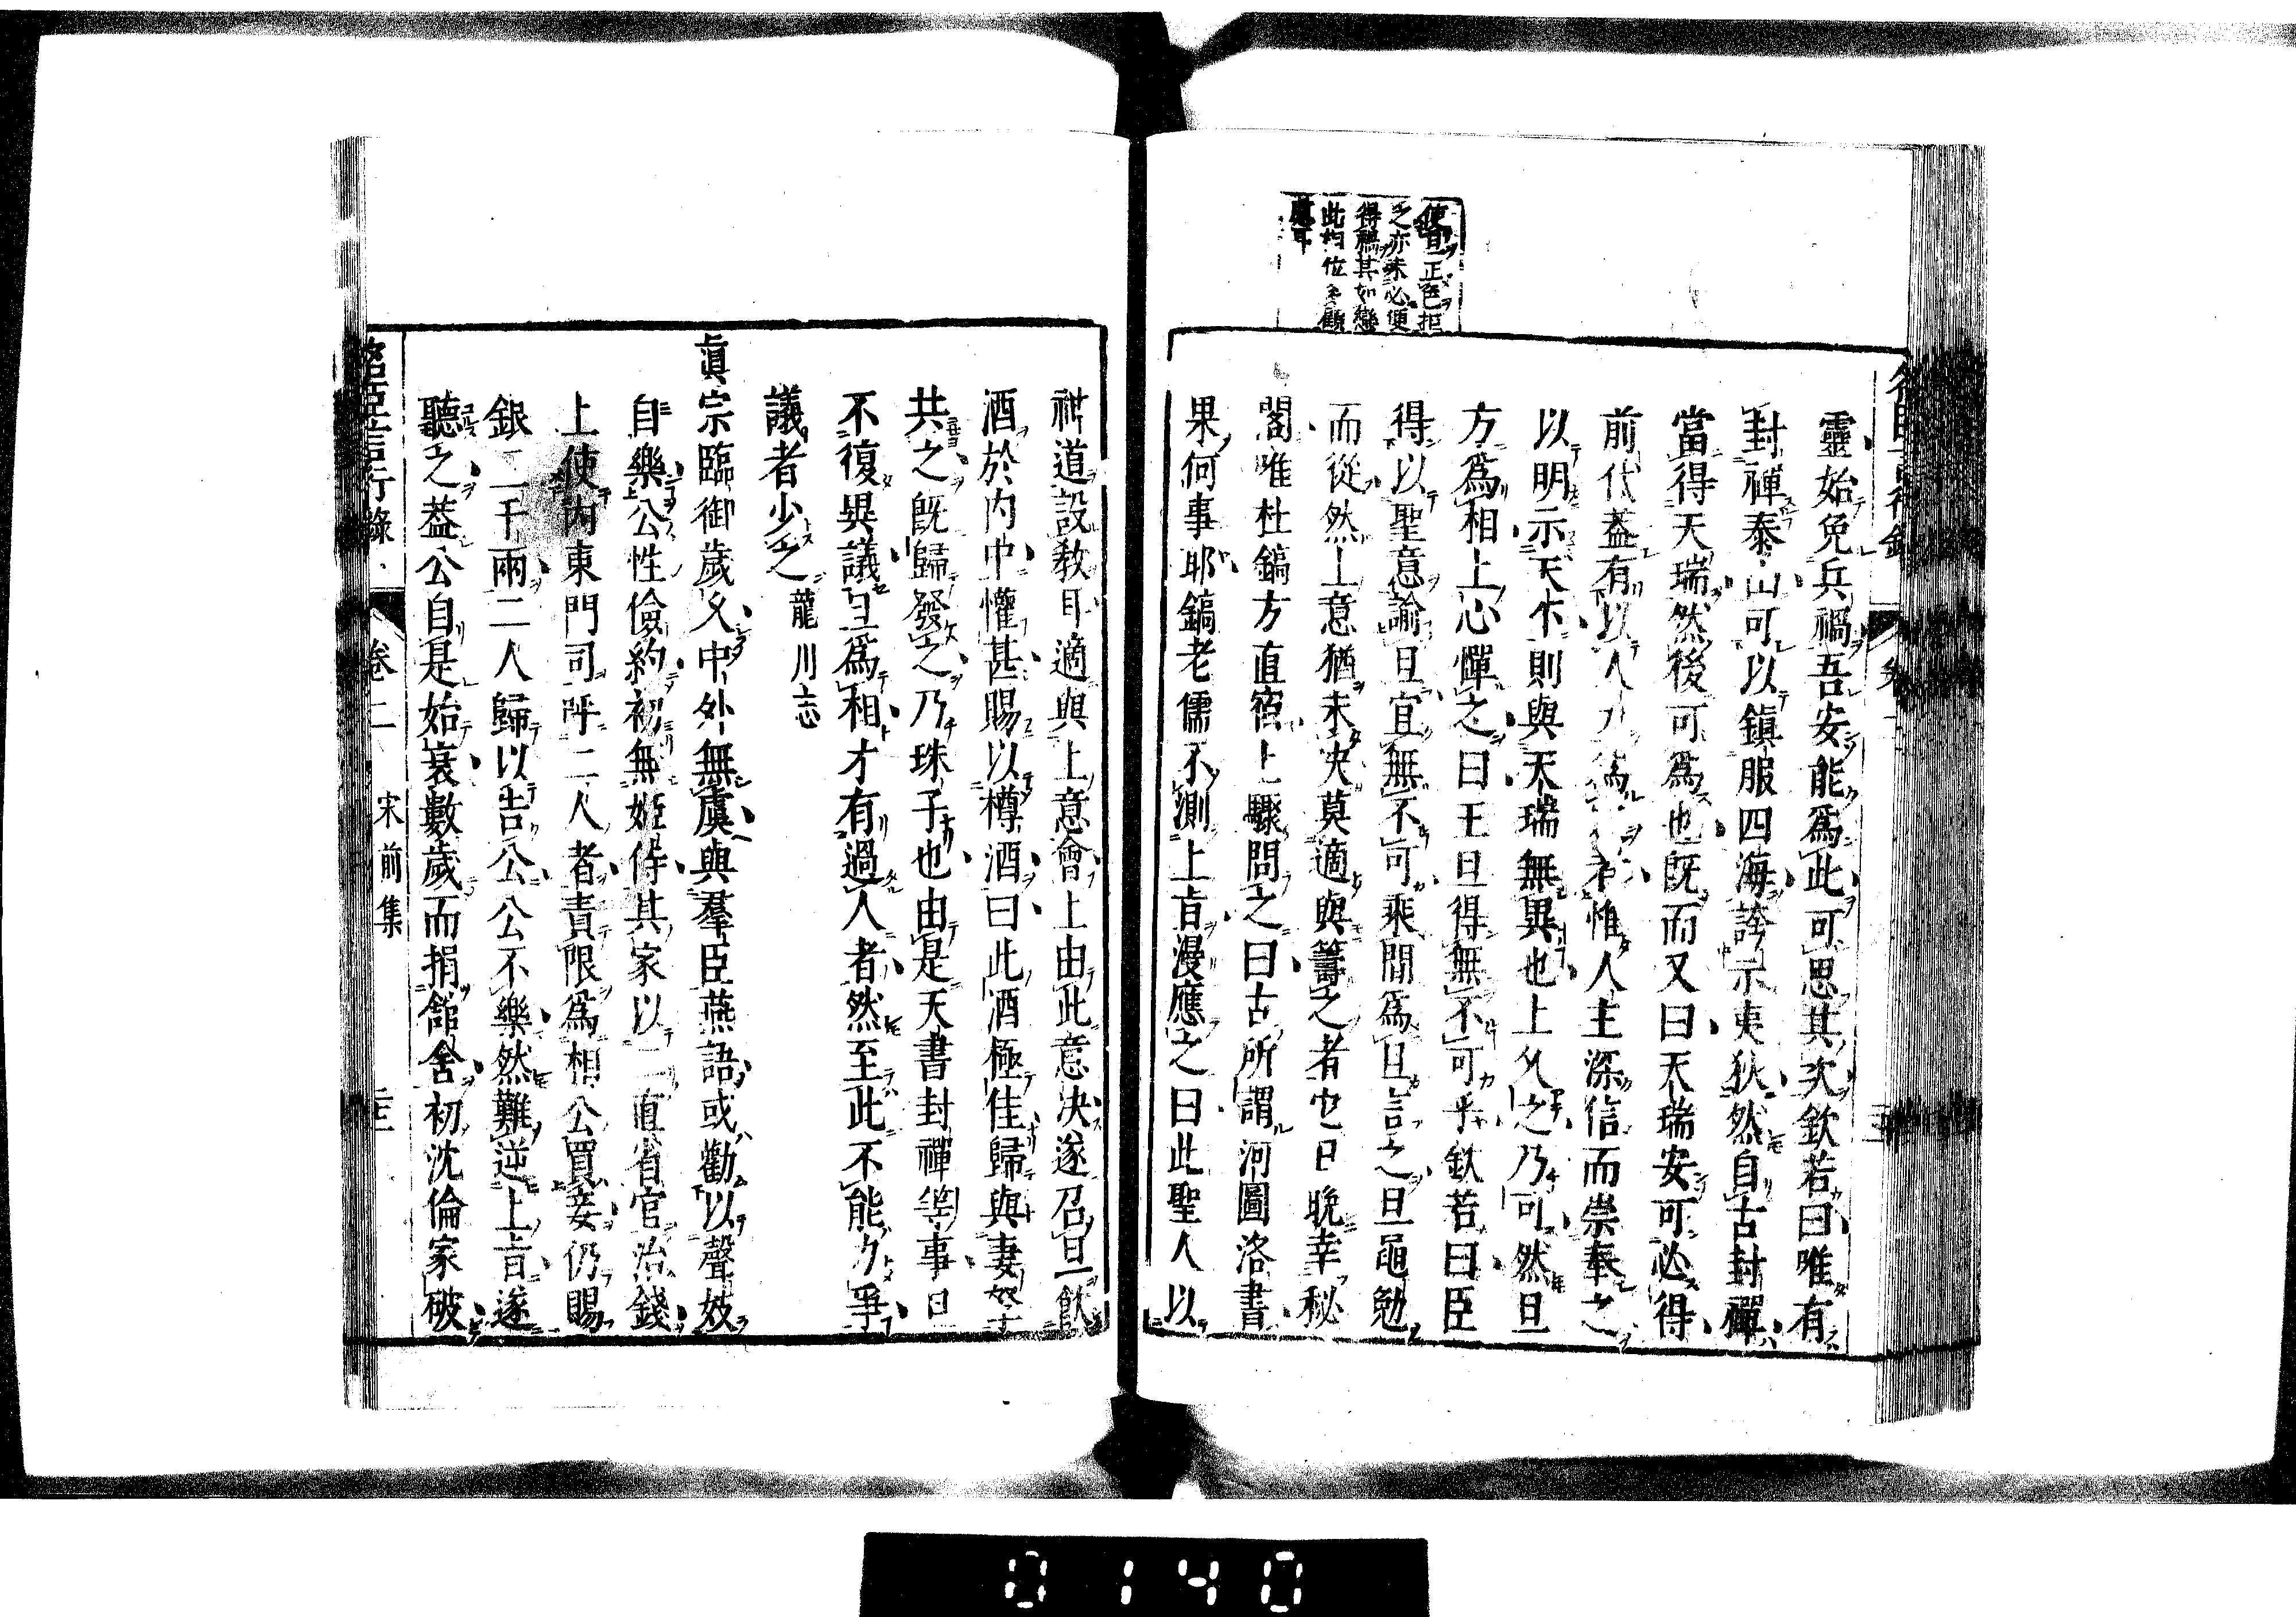 使旦正色拒
之亦未必便
得禍其如戀
此相位多顧
慮耳
靈始免兵禍吾安能爲此可思其次欽若曰唯有
封禪泰山可以鎭服四海誇示夷狄然自古封禪
當得天瑞然後可爲也既而又曰天瑞安可必得
前代葢有以人力爲之者惟人主深信而崇奉之
以明示天下則與天瑞無異也上久之乃可然旦
方爲相上心憚之曰王旦得無不可乎欽若曰臣
得以聖意諭旦宜無不可乘間爲旦言之旦黽勉
而從然上意猶未决莫適與籌之者它日晚幸秘
閣唯杜鎬方直宿上驟問之曰古所謂河圖洛書
果何事耶鎬老儒不測上㫖漫應之曰此聖人以
神道設教耳適與上意會上由此意决遂召旦飮
酒於内中懽甚賜以樽酒曰此酒極佳歸與妻孥
共之既歸發之乃珠子也由是天書封禪等事旦
不復異議旦爲相才有過人者然至此不能力爭
議者少之 龍川志
眞宗臨御歲久中外無虞與羣臣燕語或勸以聲妓
自樂公性儉約初無姬侍其家以二直省官治錢
上使内東門司呼二人者責限爲相公買妾仍賜
銀二千兩二人歸以告公公不樂然難逆上㫖遂
聽之葢公自是始衰數歲而捐舘舍初沈倫家破
名臣言行錄 卷二 宋前集